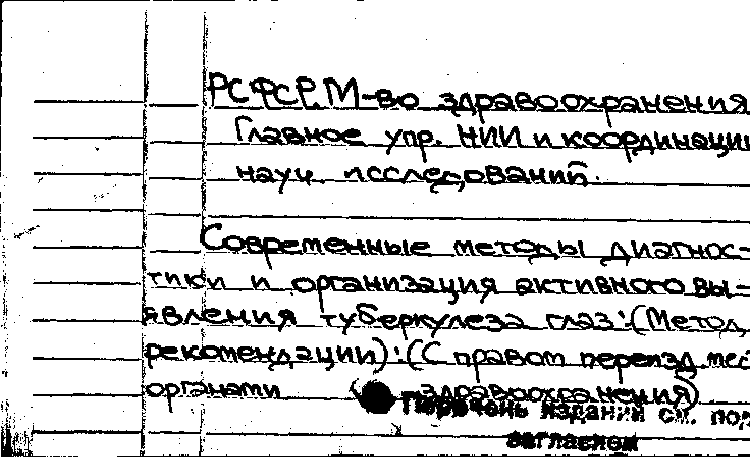 РСФСР. М-во здравоохранения
Главное упр. НИИ и координации
науч. исследований.
Современные методы диагнос-
тики и организация активного вы-
явления туберкулеза глаз:(Метод.
рекомендации):(С правом переизд. мес
органами здравоохранения)
Перечень изданий см. под
заглавием